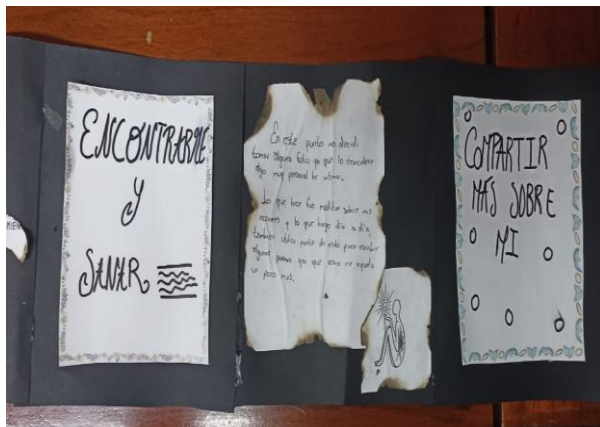 ENCONTRARME
Y
SANAR
En este punto no decidí
tomar alguna foto ya que lo considero
algo muy personal he íntimo.
Lo que hice fue meditar sobre mis
acciones y lo que hago día a día,
también utilice parte de esto para escribir
algunos poemas ya que estos me ayuda
un poco mas.
COMPARTIR
MÁS SOBRE
MI